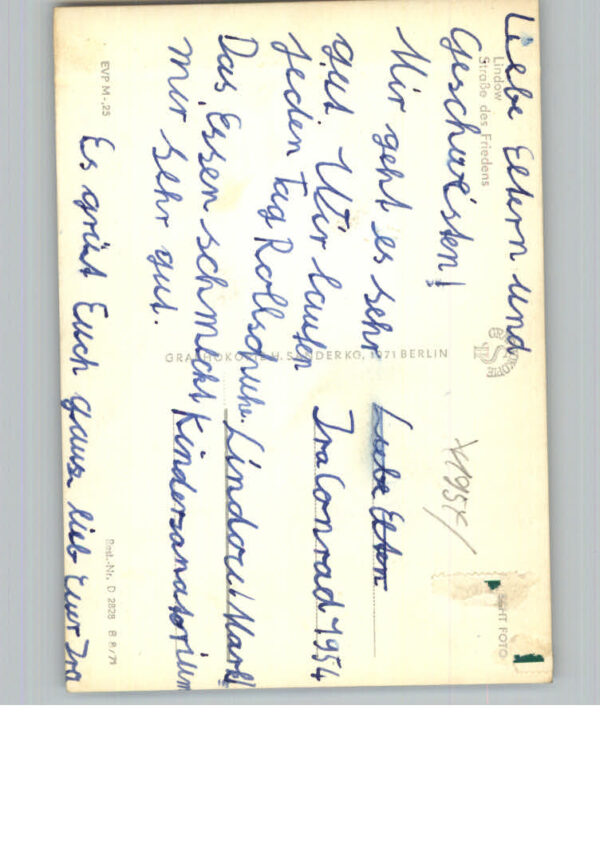 Lindow
Straße des Friedens
Liebe Eltern und
Geschwisten!
Mir geht es sehr
gut Wir laufen
jeden Tag Rollschuhe.
Das Essen schmeckt
mir sehr gut.
Es grüst Euch ganz lieb Euer Ira
EVP M -,25
GRAPHOKOPIE H. SANDER KG, 1071 BERLIN
GRAPHOKOPIE
HS
X1954/
Liebe Eltern
Ira Conrad 1954
Lindow/Mark
Kindersanatorium
ECHT FOTO
Best.-Nr. D 2828 8 8/71